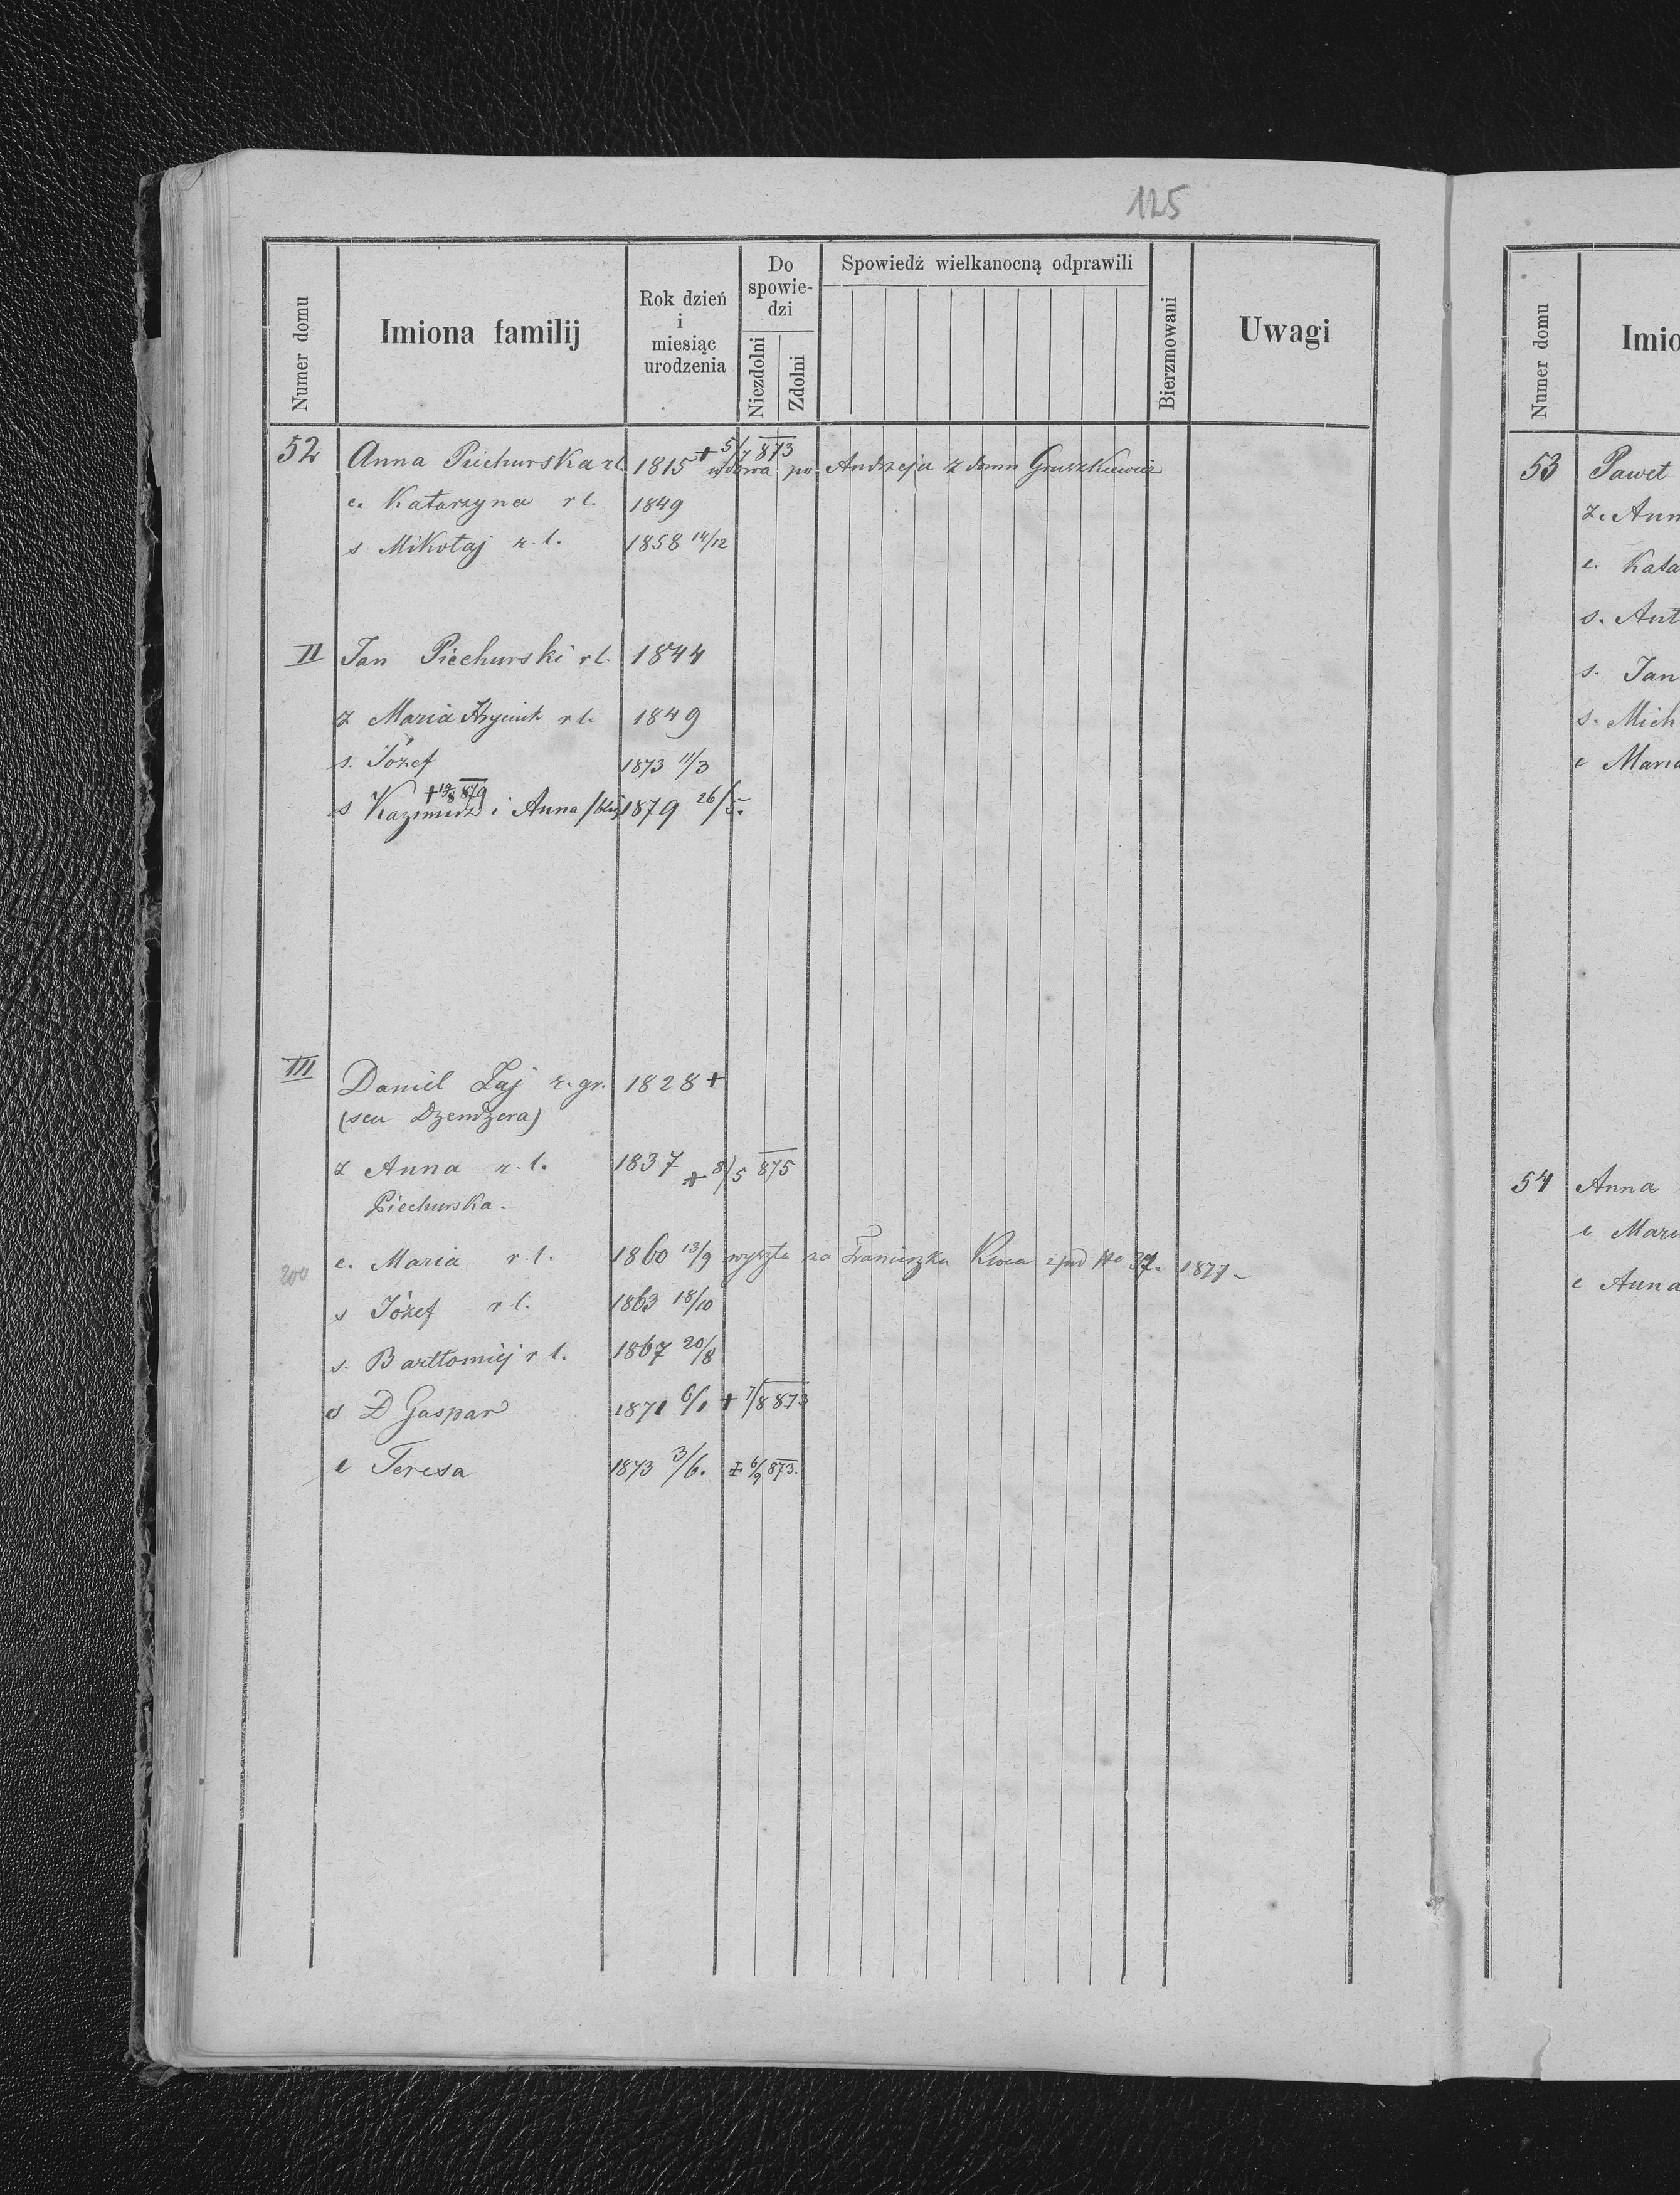 125
Numer domu
Imiona familij
Rok dzień i miesiąc urodzenia
Do spowiedzi
Niezdolni
Zdolni
Spowiedź wielkanocną odprawili
Bierzmowani
Uwagi
52 Anna Piechurska rl. 1815 + 5/7 873 wdowa po Andrzeju z domu Gruszkiewicz
c. Katarzyna rl. 1849
s Mikołaj r. l. 1858 14/12
II Jan Piechurski rl. 1844
z Maria Hryciuk rl. 1849
s. Józef 1873 11/3
+ 19/8 879
s Kazimierz i Anna 1879 26/5.
III Daniel Zaj r. gr. 1828 +
(seu Dzendzera)
z Anna r. l. 1837 + 8/5 875
Piechurska.
c. Maria r. l. 1860 13/9 wyszła za Franciszka z pod No 37. 1877
200
s Józef rl. 1863 18/10
s. Bartłomiej rl. 1867 20/8
s Gaspar 1871 6/1 + 7/8 873
c Teresa 1873 3/6. + 6/9 873.
Numer domu
Imio
53 Paweł
z. Ann
c. Kata
s. Ant
s. Jan
s. Mich
c Maria
54 Anna
c Mari
c Anna